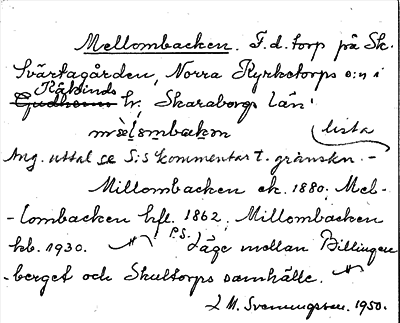 Mellombacken. F. d. torp på Sk.
Svärtagården, Norra Kyrketorps s:n i
Kåkinds
Gudhems hr, Skaraborgs län.
mèlembakan
lista
Ang. uttal se S:s kommentar t. granskn. -
Millombacken ek. 1880; Mel-
-lombacken hfl. 1862; Millombacken
kb. 1930. P.S. Läge mellan Billingen
-berget och Skultorps samhälle.
L M. Svenungsson. 1950.